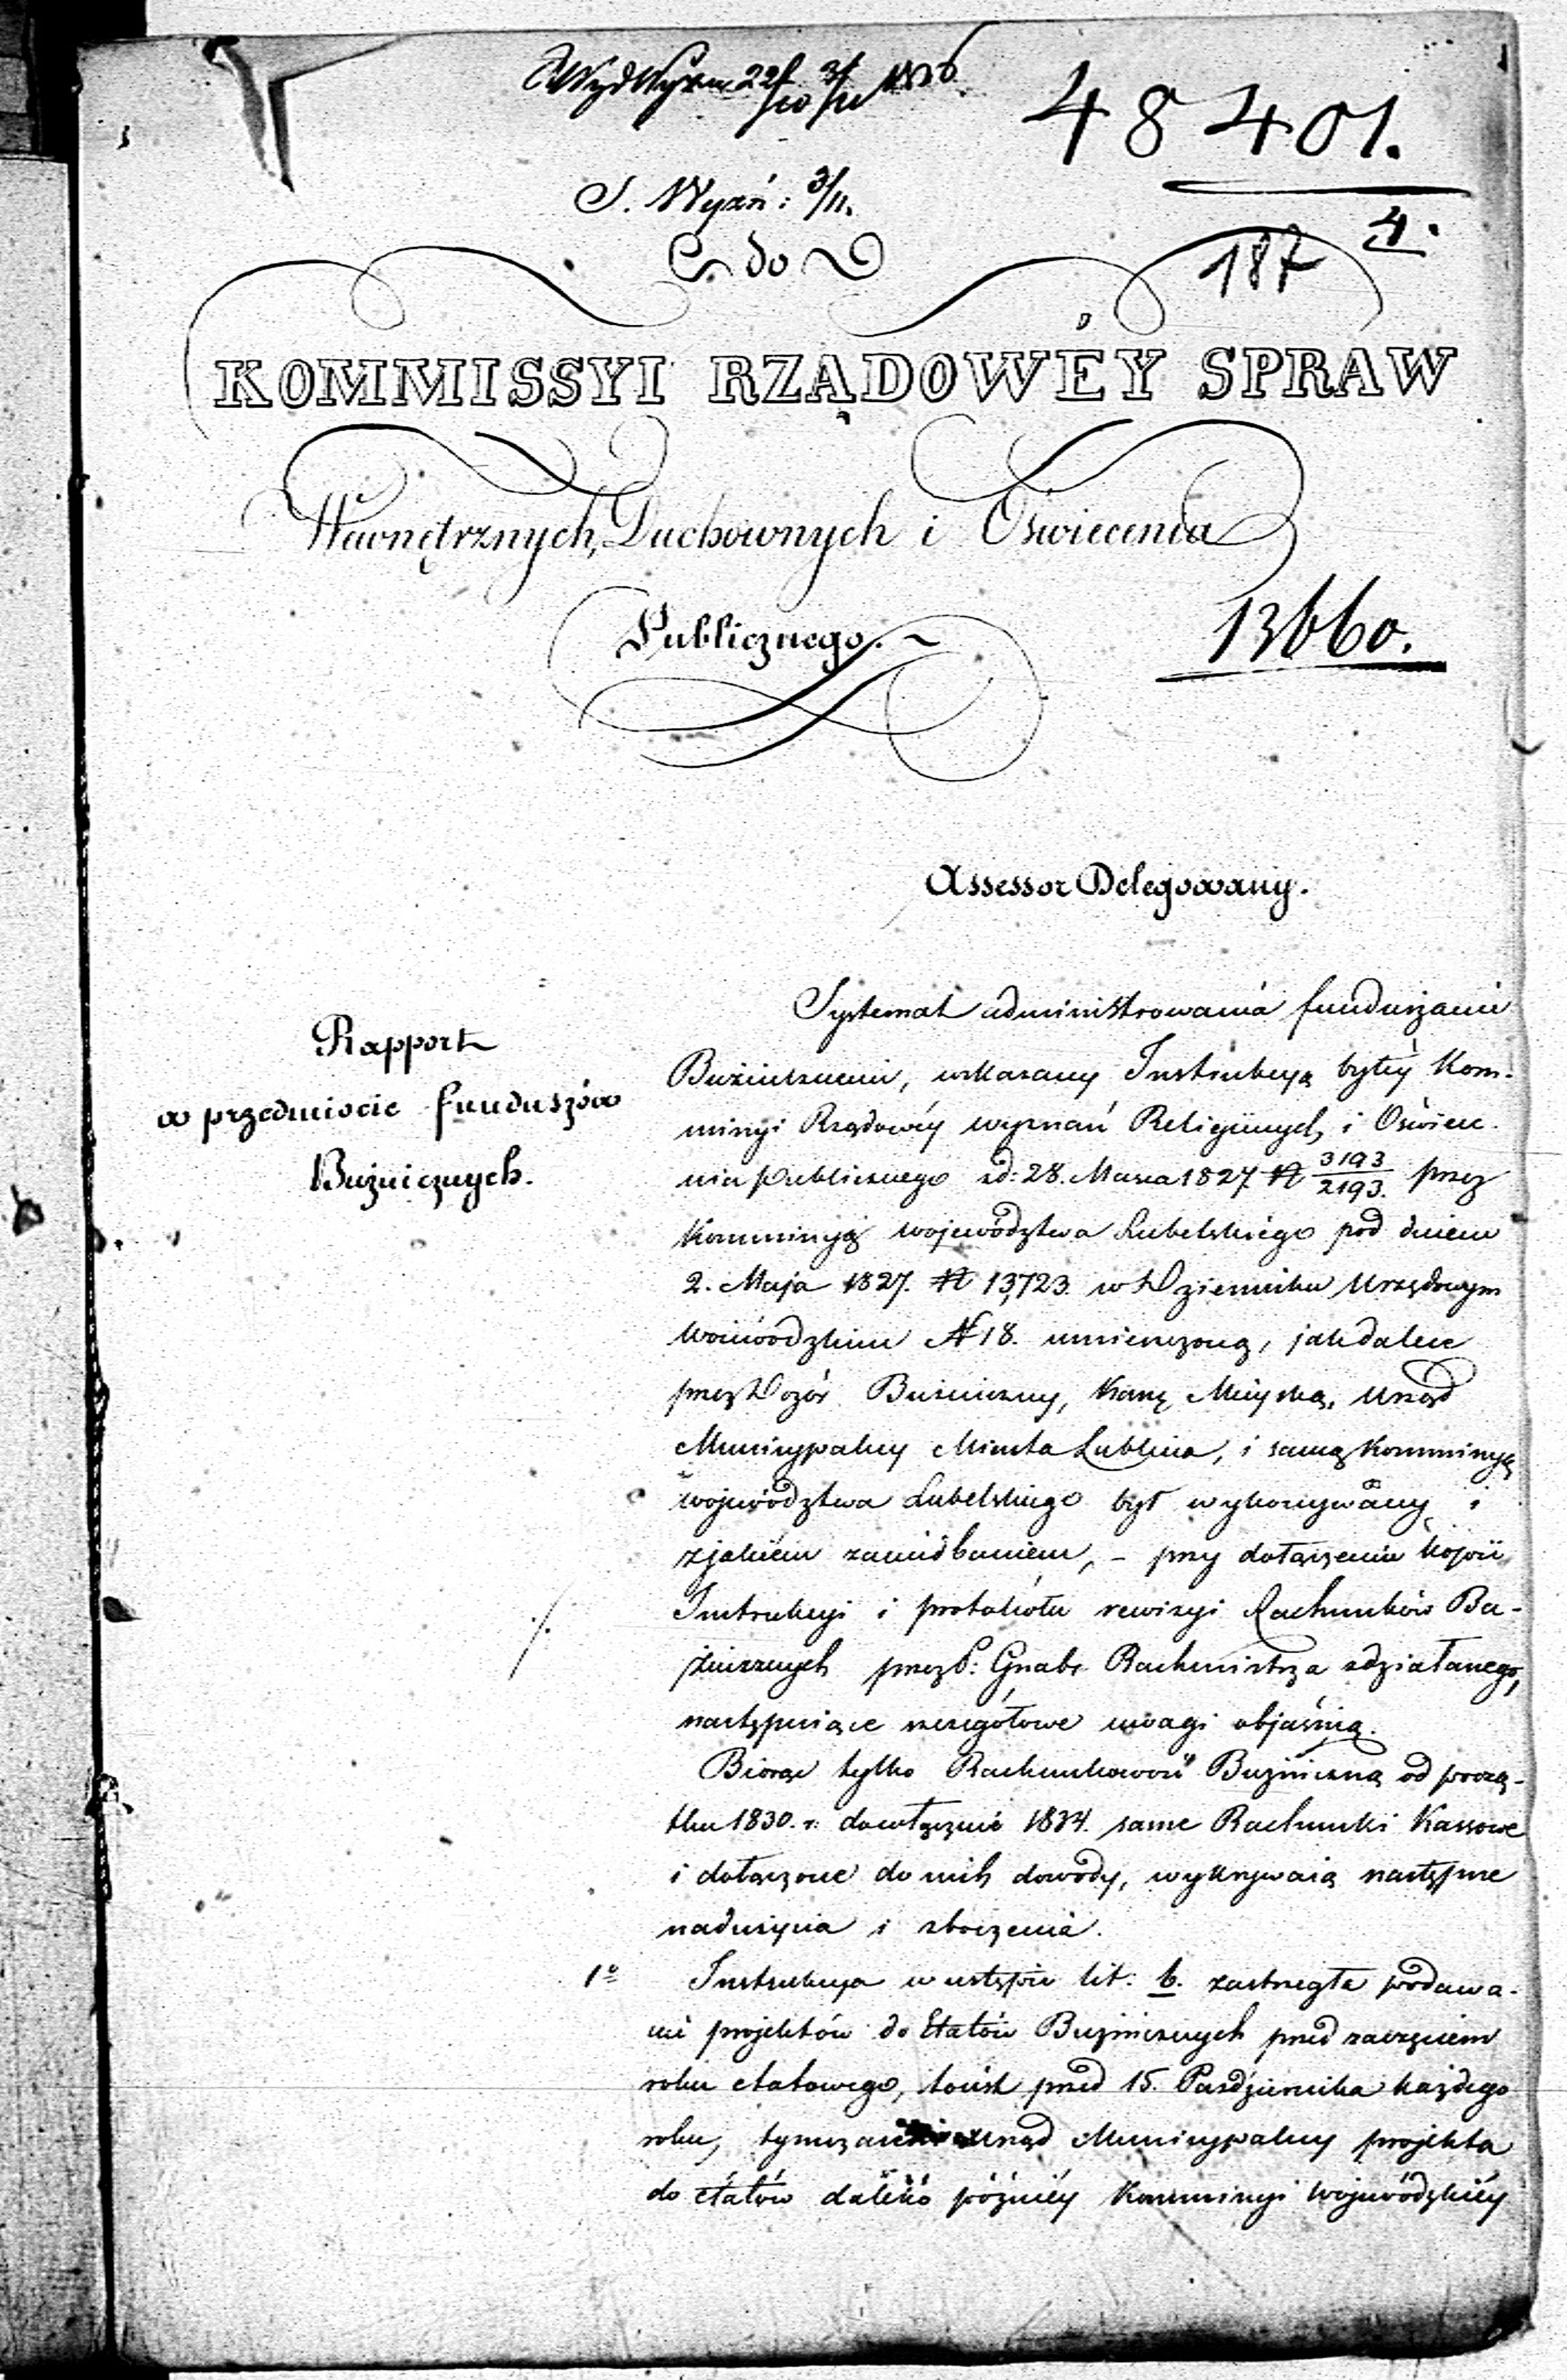 48401.
S. Wyzń: 3/11.
4.
do
187
KOMMISSYI RZĄDOWÉY SPRAW
Wewnętrznych, Duchownych i Oświecenia
Publicznego.
13660.
Assessor Delegowany.
Rapport
w przedmiocie funduszów
Bużnicznych.
Systemat administrowania funduszami
Bużnicznemi, wskazany Instrukcyą byłéy Kom-
missyi Rządowéy wyznań Religiinych i Oświece-
nia Publicznego zd: 28. Marca 1827 N 3193/2193. przez
Kommissyą województwa Lubelskiego pod dniem
2. Maja 1827. N 13,723. w Dzienniku Urzędowym
woiewódzkim N 18. umieszczoną, jak dalece
przez Dozór Bużniczny, Kassę Mieyską, Urząd
Municypalny Miasta Lublina, i samą Kommissyą
województwa Lubelskiego był wykonywany i
z jakiém zaniedbaniem, – przy dołączeniu kopii
./. Instrukcyi i protokółu rewizyi Rachunków Bu-
żnicznych przez P: Gnabs Rachmistrza zdziałanego,
następuiące szczegółowe uwagi objaśnią.
Biorąc tylko Rachunkowość Bużniczną od począ-
tku 1830. r. do włącznie 1834. same Rachunki Kassowe
i dołączone do nich dowody, wykrywaią następne
nadużycia i zboczenia.
1o Instrukcya w ustępie lit: b. zastrzegła podawa-
nie projektów do Etatów Bużnicznych przed zaczęciem
roku etatowego, to iest przed 15. Pazdziernika każdego
roku, tymczasem Urząd Municypalny projekta
do etatów daleko późniéy Kommissyi Wojewódzkiéy